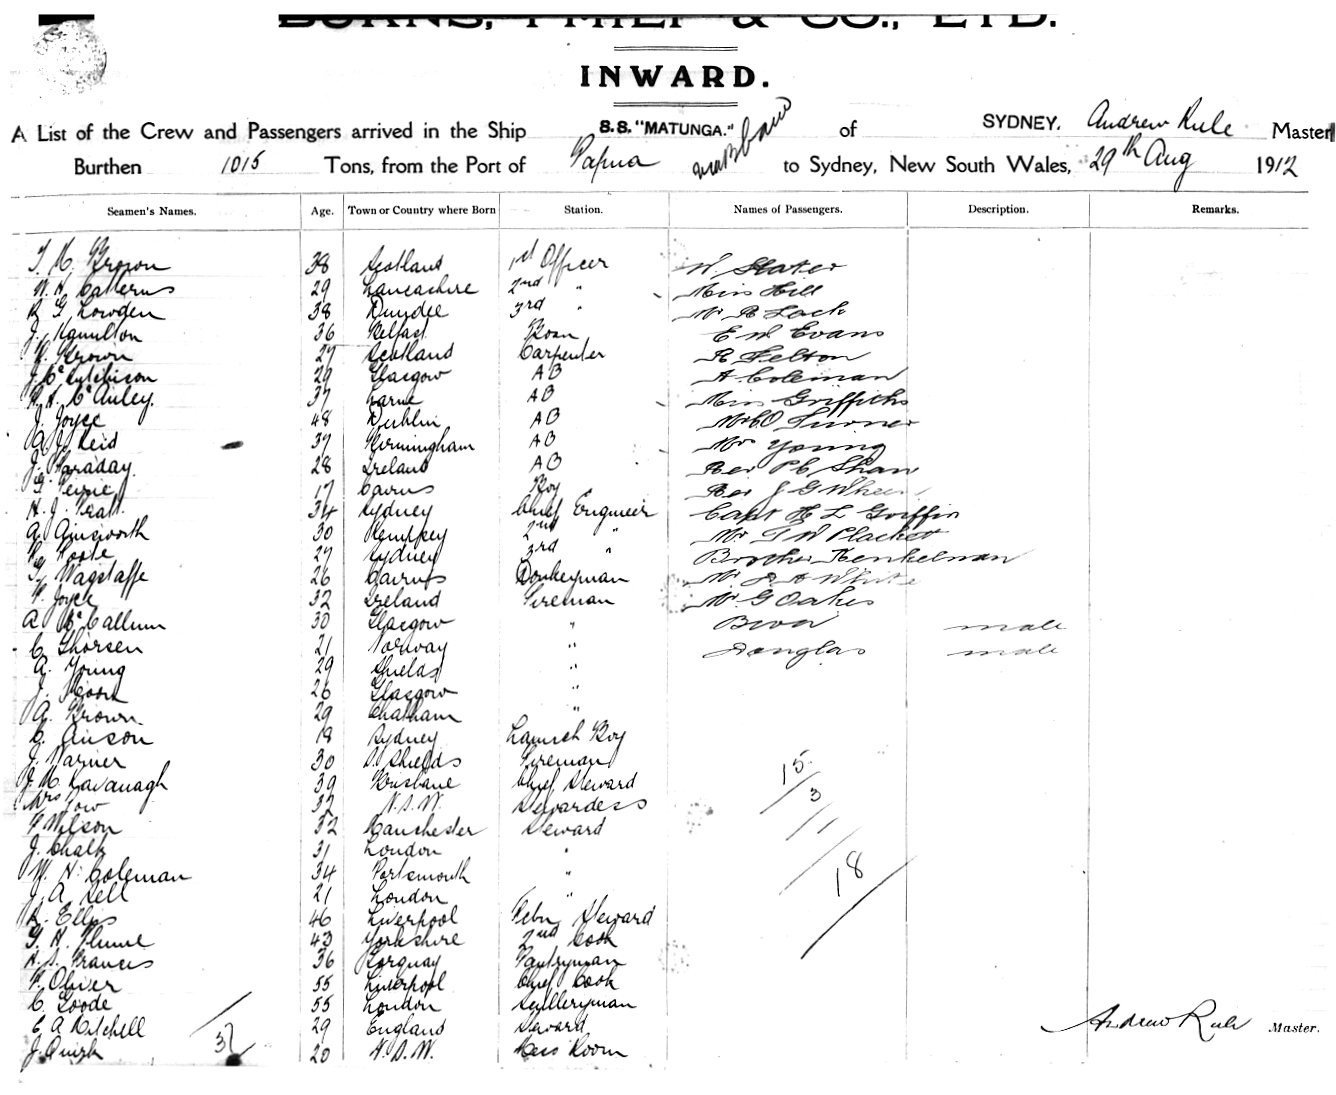 BURNS, PHILP & CO., LTD.
INWARD.
A List of the Crew and Passengers arrived in the Ship S.S. "MATUNGA." of SYDNEY, Andrew Rule Master
Burthen 1015 Tons, from the Port of Papua to Sydney, New South Wales, 29th Aug 1912
Seamen's Names. Age. Town or Country where Born Station. Names of Passengers. Description. Remarks.
Brown 38 Scotland 1st Officer W. Slater
29 Lancashire 2nd " Miss Hill
R G Lowden 38 Dundee 3rd " Mr R Lock
J. Hamilton 36 Belfast Bosn E W Evans
Brown 27 Scotland Carpenter R Felton
J. McHutchison 29 Glasgow AB A Coleman
McAuley 37 Larne AB Miss Griffiths
J. Joyce 48 Dublin AB Turner
A J Reid 37 Birmingham AB Mr Young
J. Faraday 28 Ireland AB Rev P C Shaw
17 Cairns Boy Rev J G Wheen
H. J. 34 Sydney Chief Engineer Capt H L Griffin
A Ainsworth 30 Kempsey 2nd " Mr Plackett
27 Sydney 3rd " Brother Henkelman
Wagstaffe 26 Cairns Donkeyman Mr White
Joyce 32 Ireland Fireman Mr G Oakes
A McCallum 30 Glasgow " male
C Thorsen 21 Norway " Douglas male
A. Young 29 "
J. 26 Glasgow "
A. Brown 29 Chatham "
C. Anson 18 Sydney Lamp Boy
J. Warner 30 N Shields Fireman
J. M Kavanagh 39 Brisbane Chief Steward 15
Mrs Tow 32 N.S.W. Stewardess 3
Wilson 32 Manchester Steward
J. Chalk 31 London "
W. H. Coleman 34 Portsmouth " 18
J. A. Sell 21 London "
R. Ellis 46 Liverpool Steward
Plume 43 Yorkshire 2nd Cook
H. S. Francis 36 Torquay Pantryman
Oliver 55 Liverpool Chief Cook
C. Goode 55 London Sculleryman
C A Mitchell 29 England Steward Andrew Rule Master.
J. Quirk 20 N.S.W. Mess Room